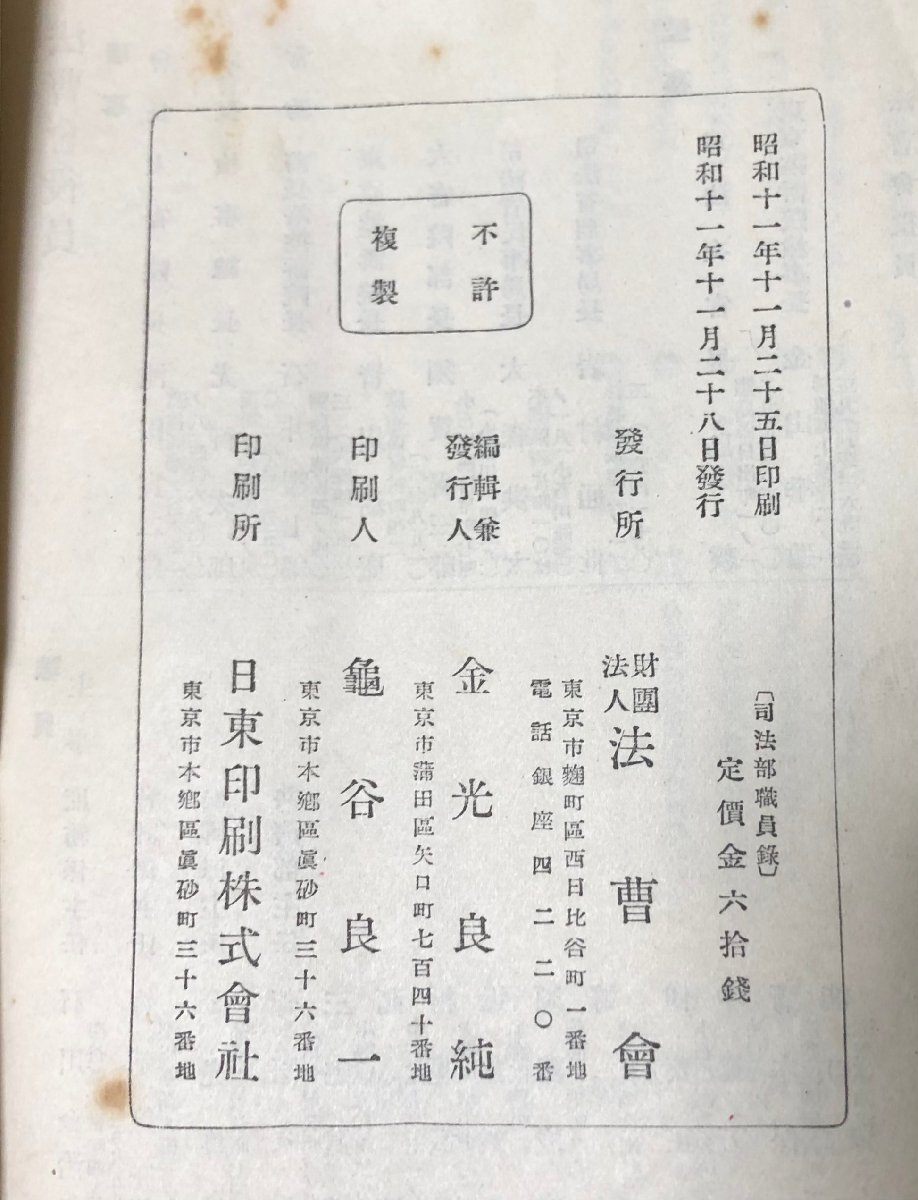 昭和十一年十一月二十五日印刷
昭和十一年十一月二十八日發行
不許
複製
〔司法部職員錄〕
定價金六拾錢
發行所
財團
法人
法曹會
東京市麹町區西日比谷町一番地
電話銀座四二二〇番
編輯兼
發行人
金光良純
東京市蒲田區矢口町七百四十番地
印刷人
龜谷良一
東京市本鄕區眞砂町三十六番地
印刷所
日東印刷株式會社
東京市本鄕區眞砂町三十六番地